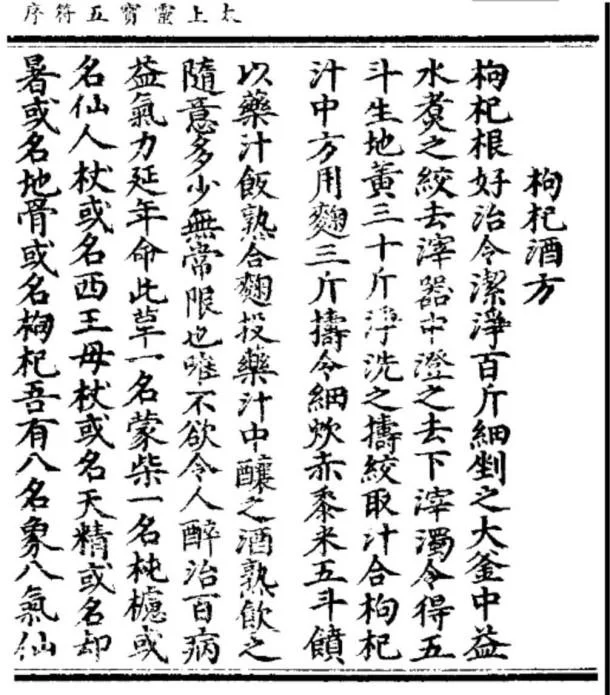 太上靈寶五符序
枸杞酒方
枸杞根好治令潔淨百斤細剉之大釜中益
水煑之絞去滓器中澄之去下滓濁令得五
斗生地黃三十斤淨洗之擣絞取汁合枸杞
汁中方用麴三斤擣令細炊赤黍米五斗饙
以藥汁飯熟合麴投藥汁中釀之酒熟飲之
隨意多少無常限也唯不欲令人醉治百病
益氣力延年命此草一名蒙柴一名杶櫖或
名仙人杖或名西王母杖或名天精或名却
暑或名地骨或名枸杞吾有八名象八氣仙